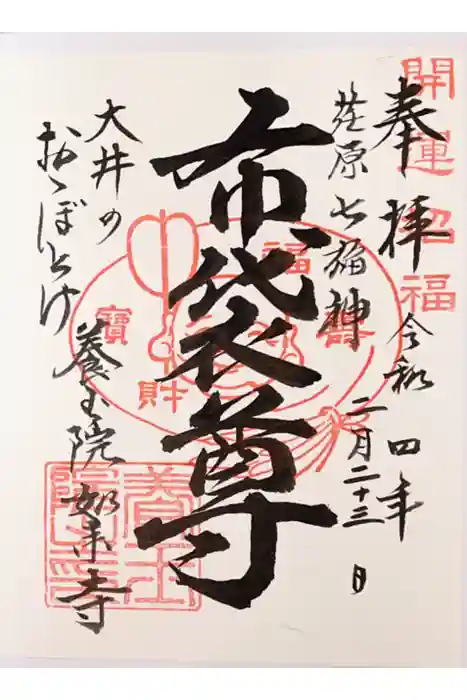 開運招福
奉拝
令和四年
二月二十三日
荏原七福神
布袋尊
大井の
おゝぼとけ
養玉院如来寺
福
壽
寶
財
養玉
院印